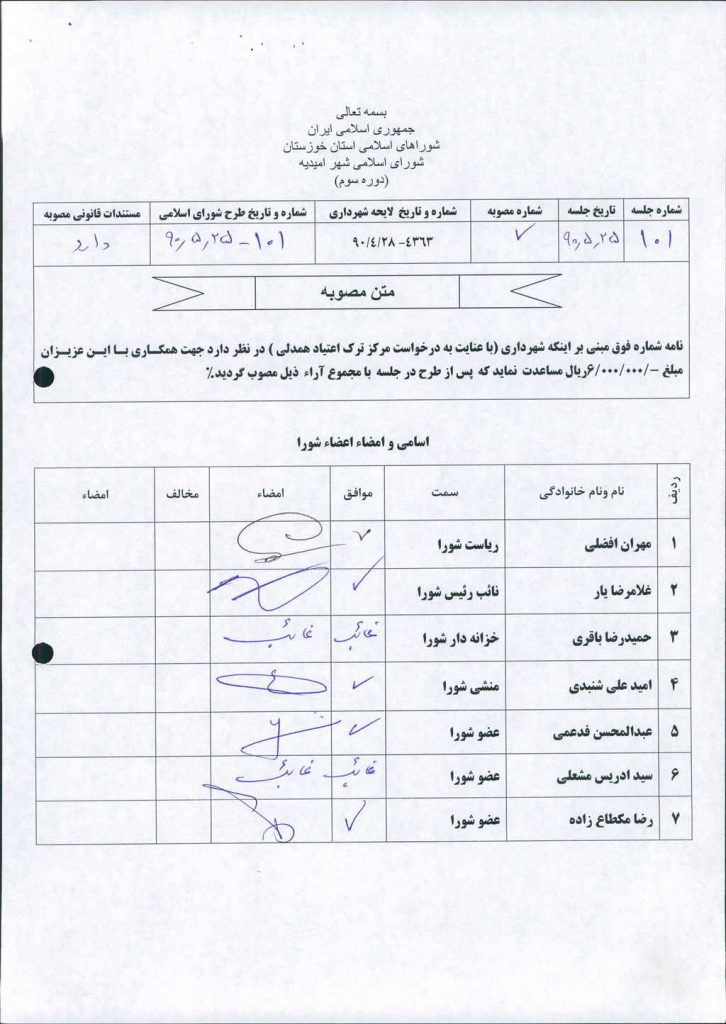 بسمه تعالی
جمهوری اسلامی ایران
شوراهای اسلامی استان خوزستان
شورای اسلامی شهر امیدیه
(دوره سوم)
شماره جلسه تاریخ جلسه شماره مصوبه شماره و تاریخ لایحه شهرداری شماره و تاریخ طرح شورای اسلامی مستندات قانونی مصوبه
۱۰۱ ۹۰٫۵٫۲۵ ۷ ٤٣٦٣- ٩٠/٤/٢٨ ۱۰۱ - ۹۰٫۵٫۲۵ دارد
متن مصوبه
نامه شماره فوق مبنی بر اینکه شهرداری (با عنایت به درخواست مرکز ترک اعتیاد همدلی ) در نظر دارد جهت همکاری با این عزیزان
مبلغ -/۶/۰۰۰/۰۰۰ریال مساعدت نماید که پس از طرح در جلسه با مجموع آراء ذیل مصوب گردید.٪
اسامی و امضاء اعضاء شورا
ردیف نام ونام خانوادگی سمت موافق امضاء مخالف امضاء
۱ مهران افضلی ریاست شورا ✓
۲ غلامرضا یار نائب رئیس شورا ✓
۳ حمیدرضا باقری خزانه دار شورا غائب غائب
۴ امید علی شنبدی منشی شورا ✓
۵ عبدالمحسن فدعمی عضو شورا ✓
۶ سید ادریس مشعلی عضو شورا غائب غائب
۷ رضا مکطاع زاده عضو شورا ✓